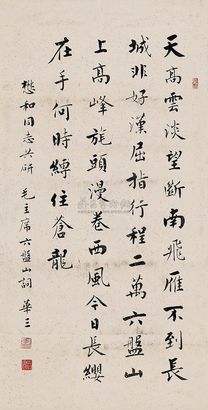 天高雲淡望斷南飛雁不到長
城非好漢屈指行程二萬六盤山
上高峰旄頭漫卷西風今日長纓
在手何時縛住蒼龍
懋和同志共研 毛主席六盤山詞 華三